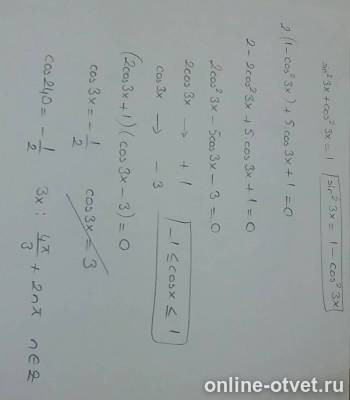 sin²3x + cos²3x = 1 sin²3x = 1 - cos²3x
2(1-cos²3x) + 5cos3x + 1 = 0
2 - 2cos²3x + 5cos3x + 1 = 0
2cos²3x - 5cos3x - 3 = 0
2cos3x → + 1
cos3x → - 3
-1 ≤ cosx ≤ 1
(2cos3x+1)(cos3x-3) = 0
cos3x = -1/2 cos3x = 3
cos240 = -1/2 3x : 4π/3 + 2nπ n∈Z
online-otvet.ru